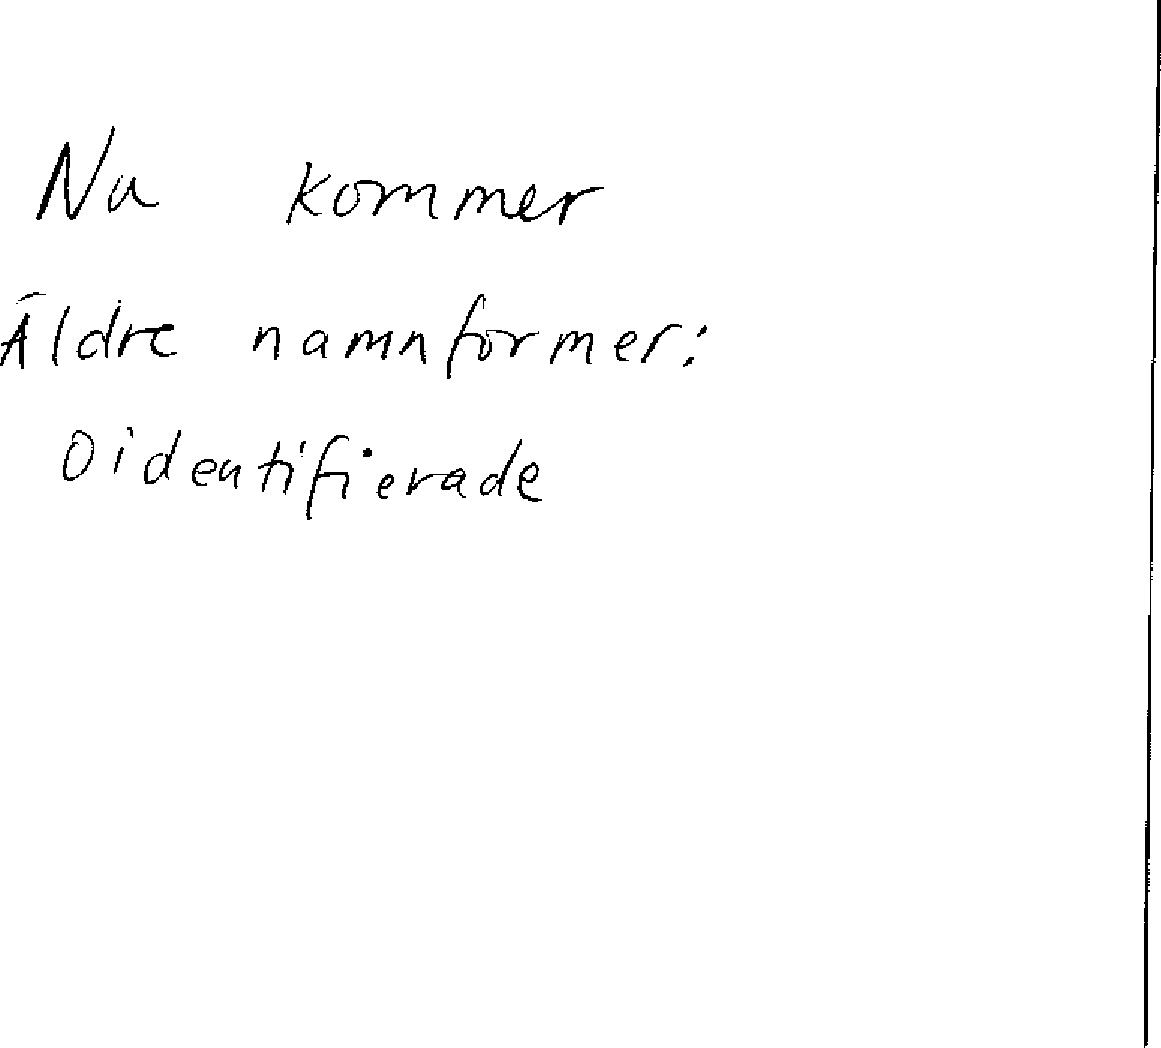 Nu kommer
Äldre namnformer:
Oidentifierade